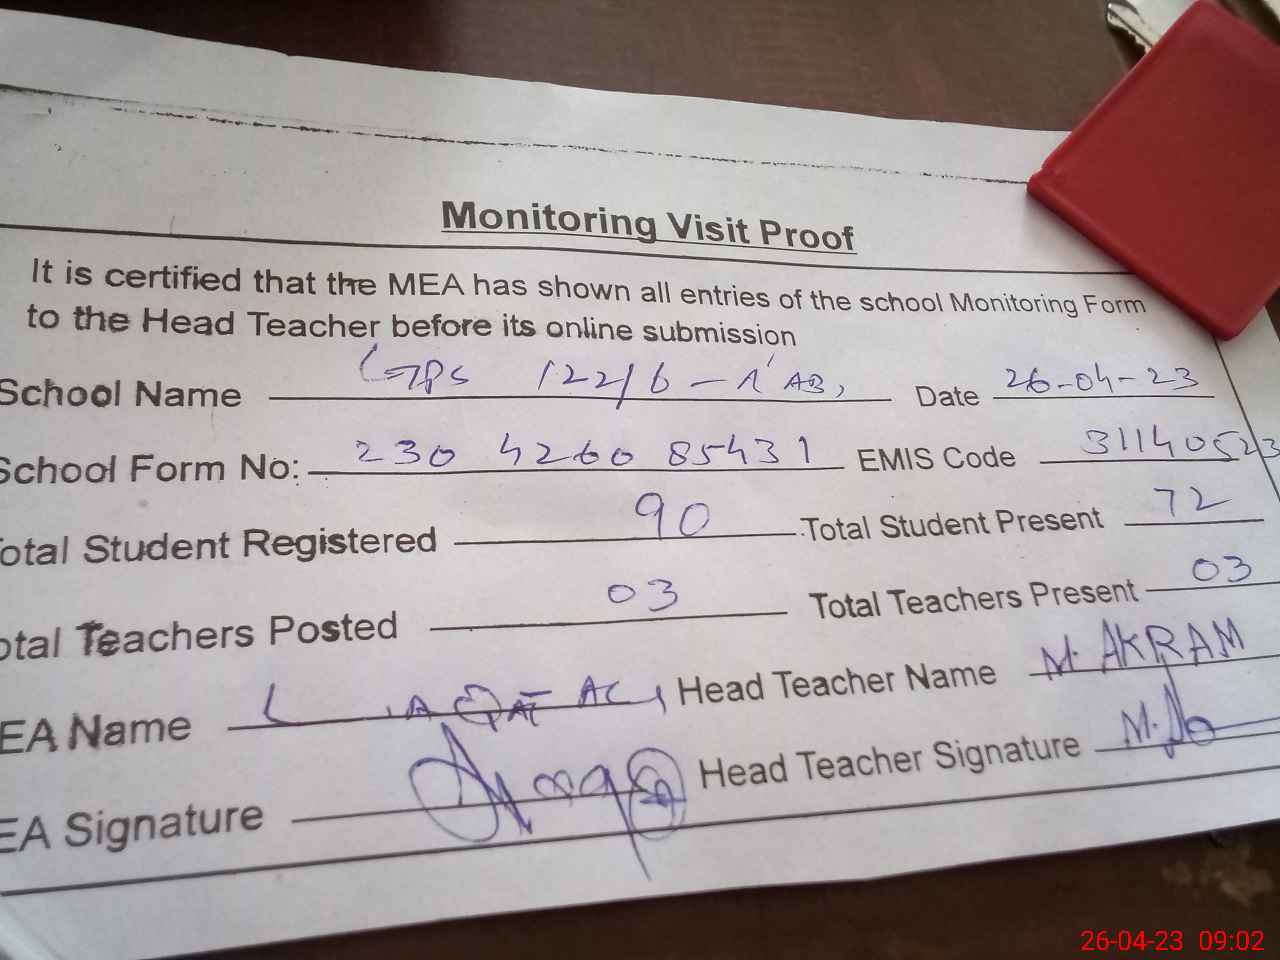 Monitoring Visit Proof
It is certified that the MEA has shown all entries of the school Monitoring Form
to the Head Teacher before its online submission
School Name GPS 122/6-R AB, Date 26-04-23
School Form No: 230 4260 85431 EMIS Code 31140523
otal Student Registered 90 Total Student Present 72
otal Teachers Posted 03 Total Teachers Present 03
EA Name LIAQAT ALI Head Teacher Name M. AKRAM
EA Signature Head Teacher Signature
26-04-23 09:02